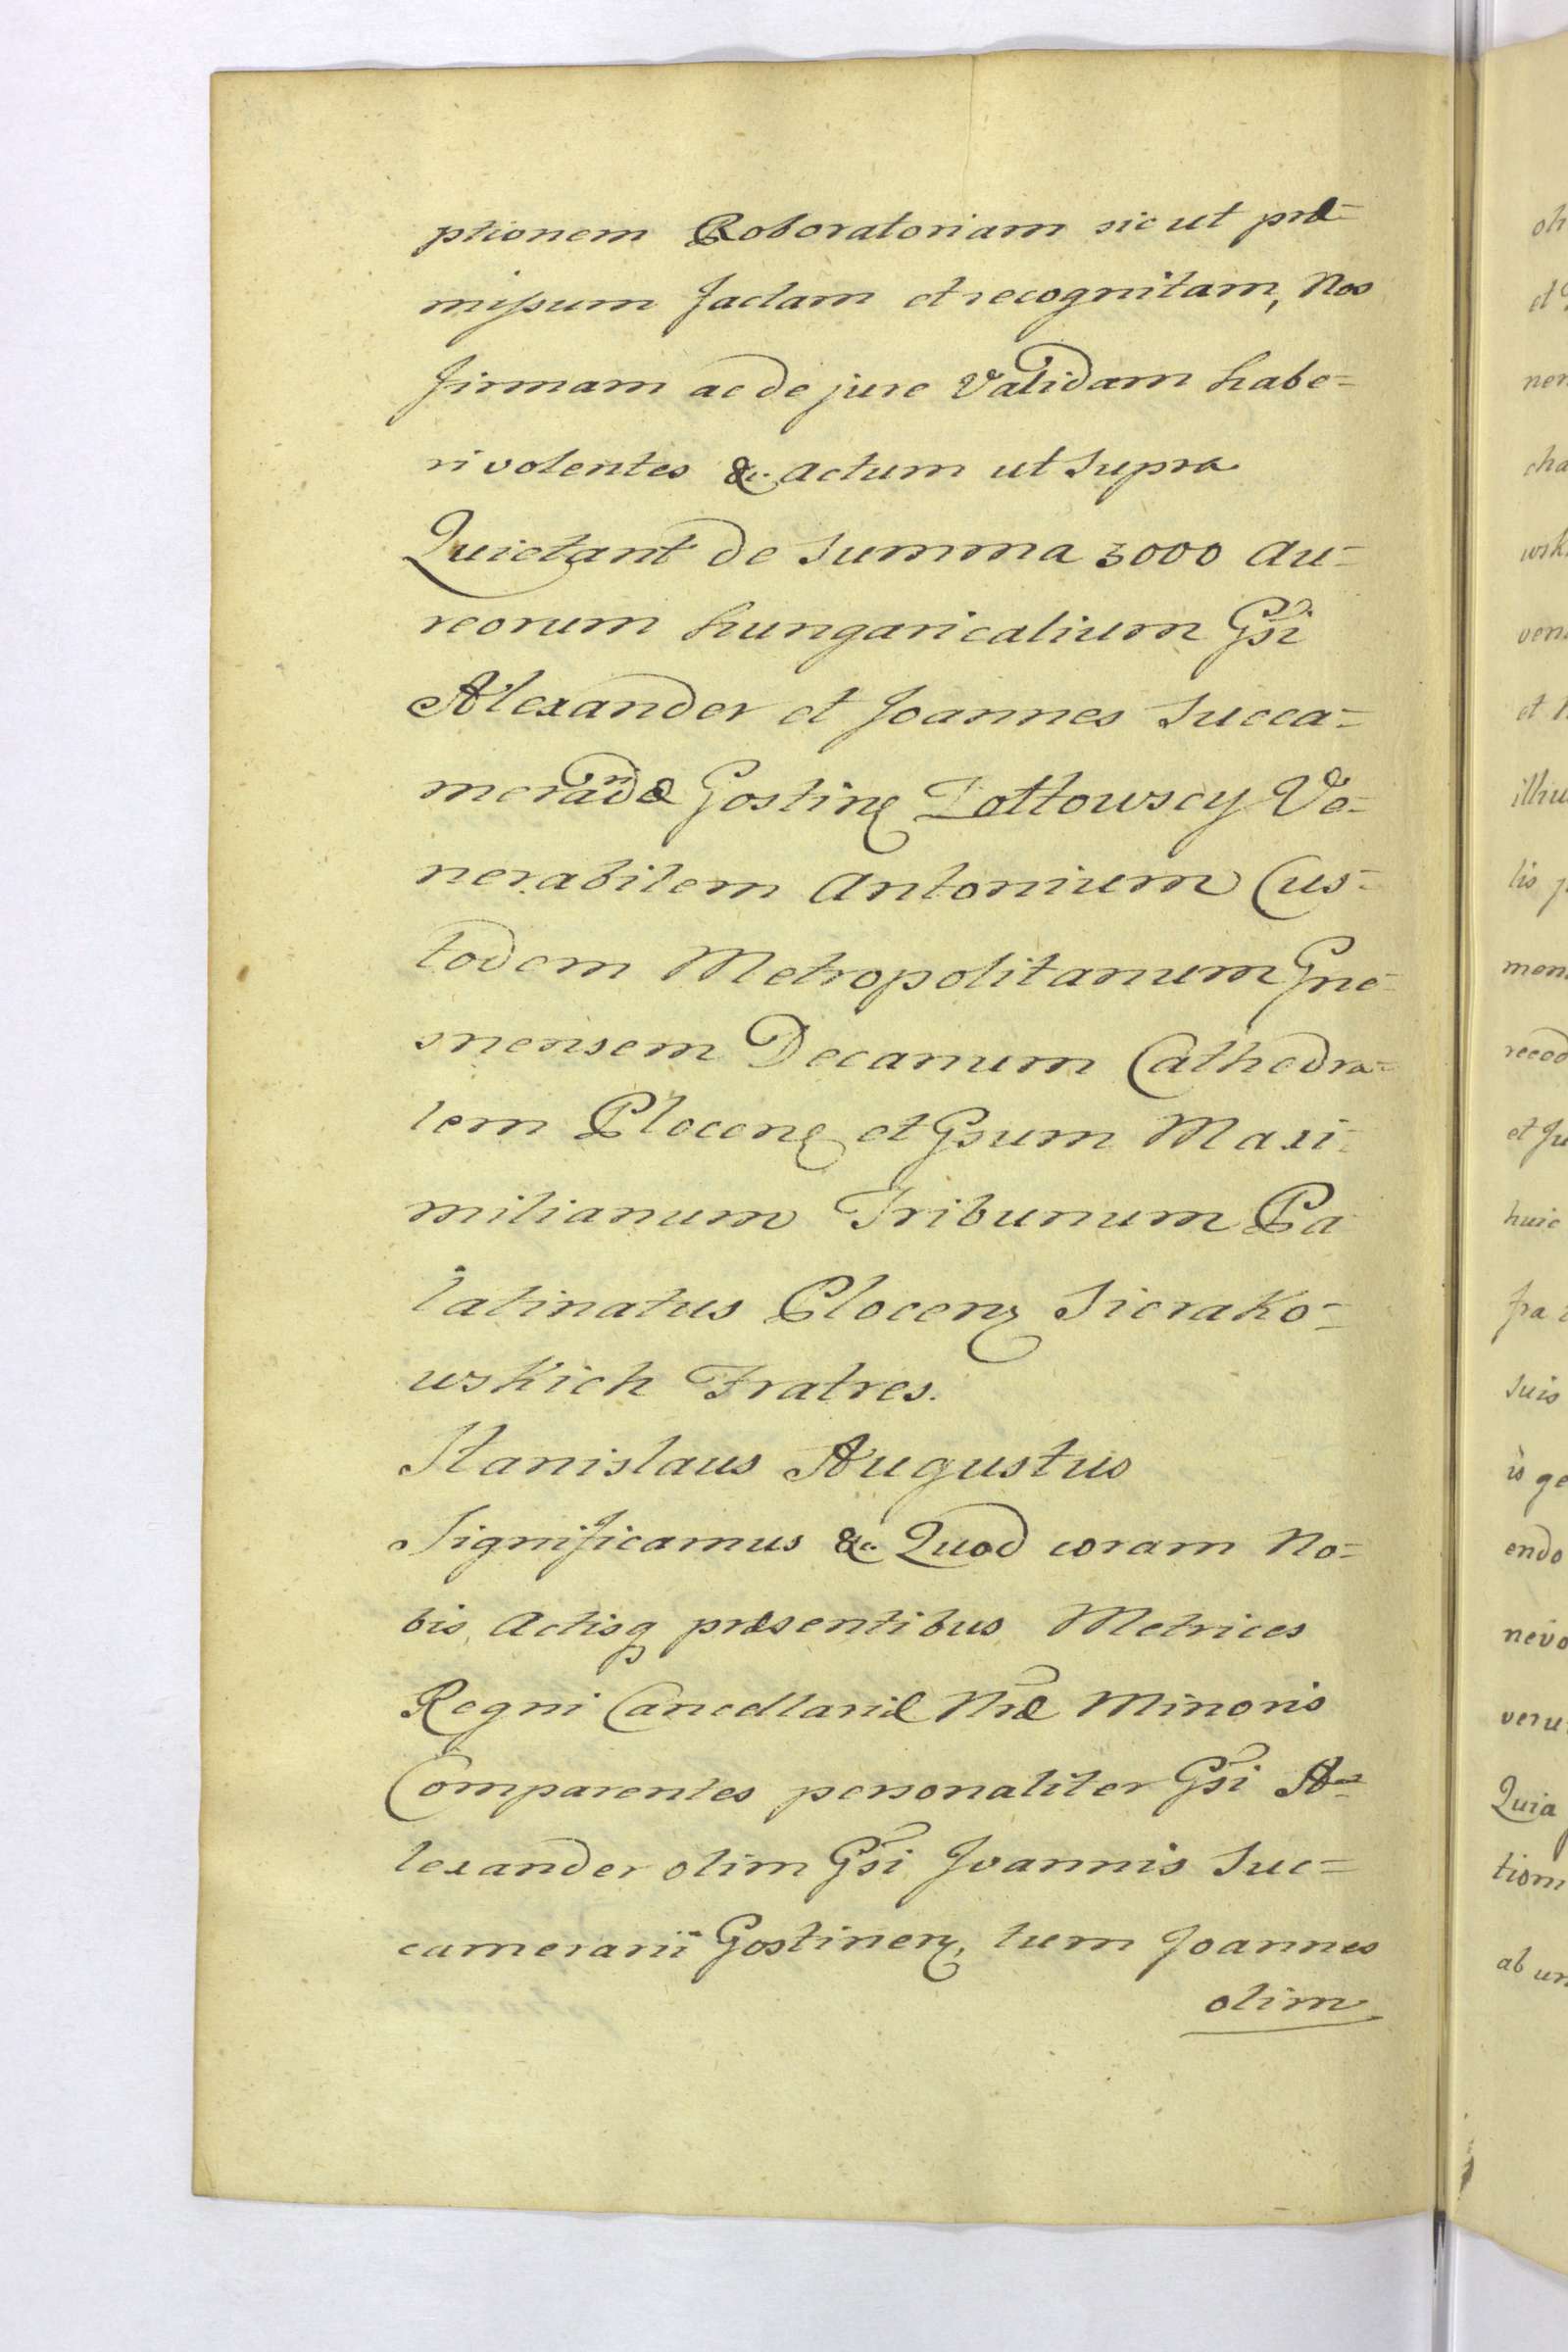 ptionem Roboratoriam sicut præ=
missum factam et recognitam, Nos
firmam ac de jure Validam habe=
ri volentes &c. actum ut supra
Quietant de Summa 3000 au=
reorum hungaricalium Gsi
Alexander et Joannes Succa=
merandæ Gostinens Zottowscy Ve=
nerabilem Antonium Cus=
todem Metropolitanum Gne=
snensem Decanum Cathedra=
lem Plocens et Gsum Maxi=
milianum Tribunum Pa
latinatus Plocens Sierako=
wskich Fratres.
Stanislaus Augustus
Significamus &c. Quod coram No=
bis, Actisq præsentibus Metrices
Regni Cancellariæ Nræ Minoris
Comparentes personaliter Gsi A=
lexander olim Gsi Joannis Suc=
camerarii Gostinens, tum Joannes
olim
oli
et
ner
cha
wsk
ven
et
illu
lis
mon
recod
et Ju
huic
fra
suis
is ge
endo
nevo
veru
Quia
tiom
ab un